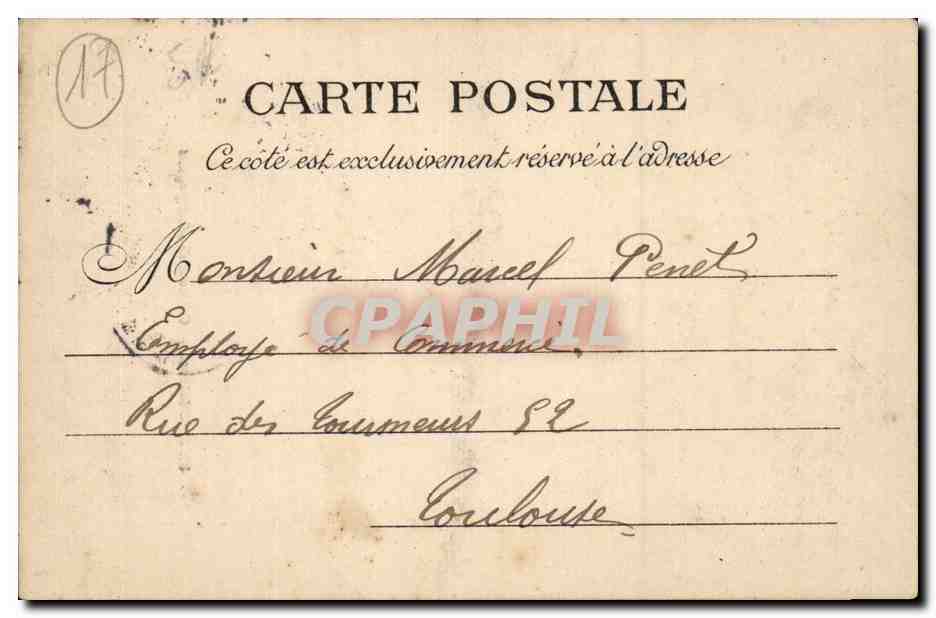 17
CARTE POSTALE
Ce côté est exclusivement réservé à l'adresse
Monsieur Marcel Penet
CPAPHIL
Employé de Commerce.
Rue des Tourneurs 52
Toulouse